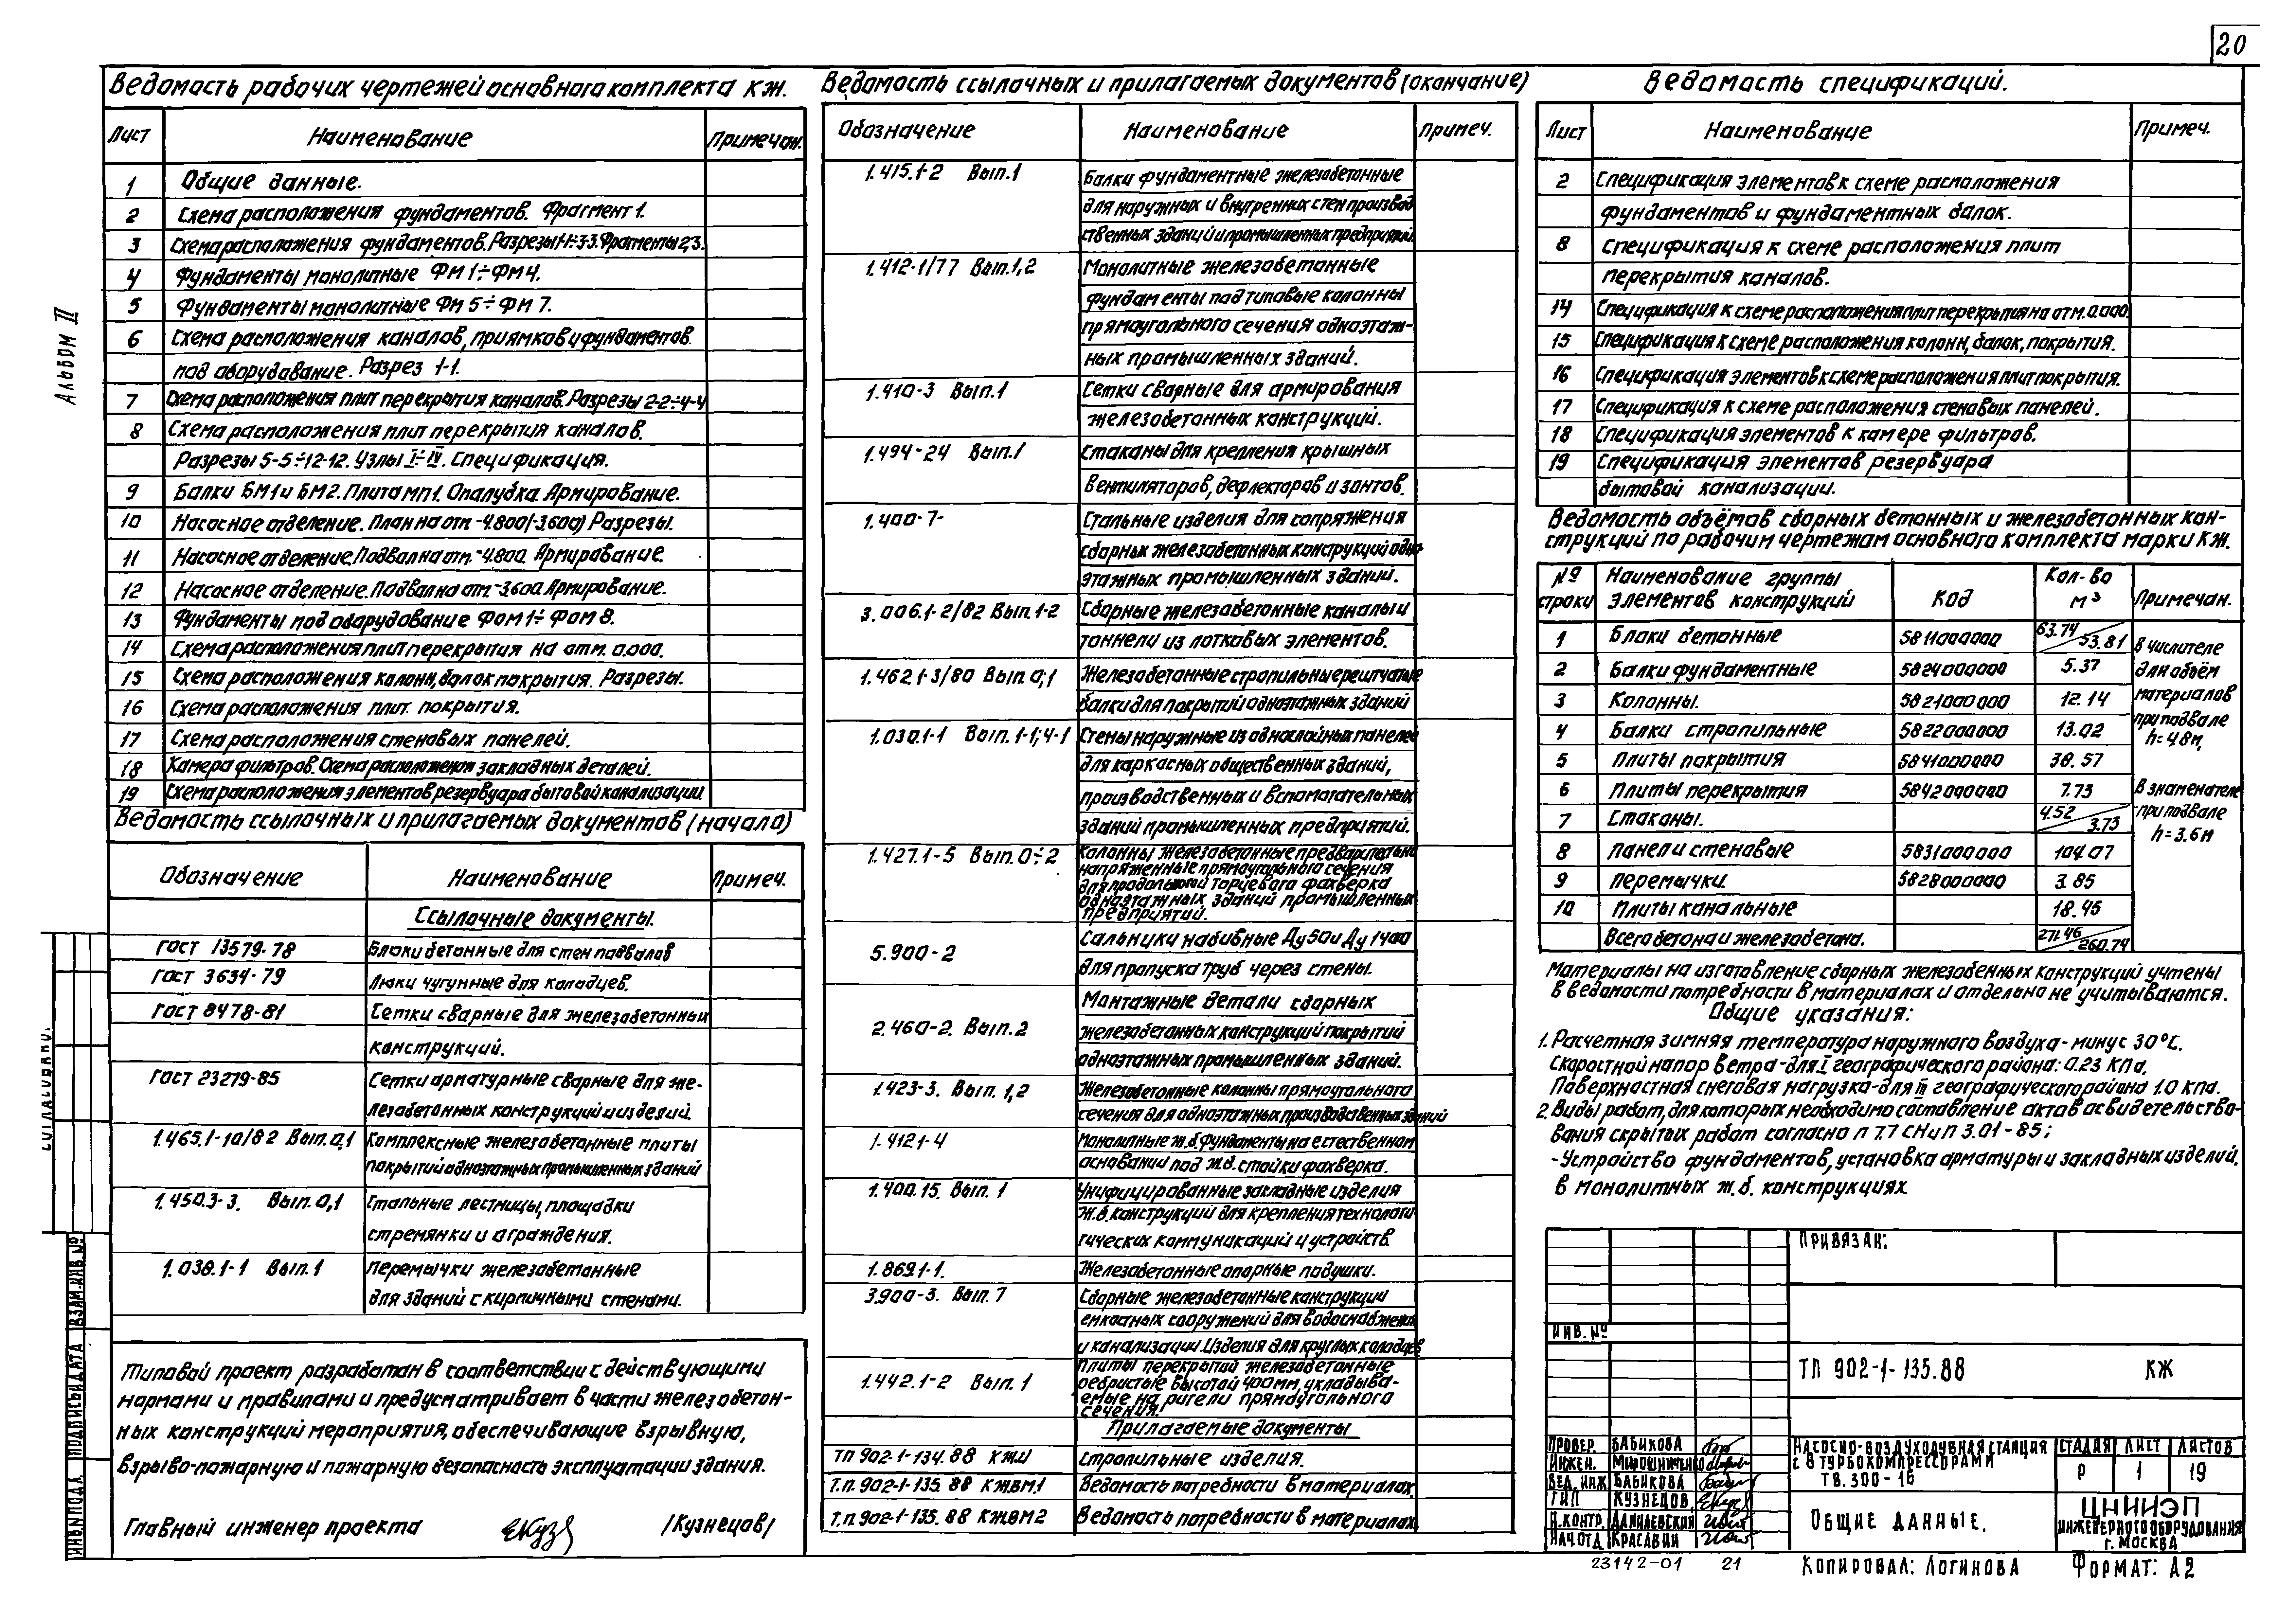 20
Альбом II
Ведомость рабочих чертежей основного комплекта КЖ.
Лист Наименование Примечан.
1 Общие данные.
2 Схема расположения фундаментов. Фрагмент 1.
3 Схема расположения фундаментов. Разрезы 1-1÷3-3. Фрагменты 2,3.
4 Фундаменты монолитные ФМ 1÷ФМ4.
5 Фундаменты монолитные Фм 5÷ФМ 7.
6 Схема расположения каналов, приямков и фундаментов
под оборудование. Разрез 1-1.
7 Схема расположения плит перекрытия каналов. Разрезы 2-2÷4-4
8 Схема расположения плит перекрытия каналов.
Разрезы 5-5÷12-12. Узлы I÷IV. Спецификация.
9 Балки БМ1 и БМ2. Плита МП1. Опалубка. Армирование.
10 Насосное отделение. План на отм -4.800(-3.600) Разрезы.
11 Насосное отделение. Подвал на отм. -4.800. Армирование.
12 Насосное отделение. Подвал на отм -3.600. Армирование.
13 Фундаменты под оборудование Фом 1÷ Фом 8.
14 Схема расположения плит перекрытия на отм. 0.000.
15 Схема расположения колонн, балок покрытия. Разрезы.
16 Схема расположения плит покрытия.
17 Схема расположения стеновых панелей.
18 Камера фильтров. Схема расположения закладных деталей.
19 Схема расположения элементов резервуара бытовой канализации
Ведомость ссылочных и прилагаемых документов (начало)
Обозначение Наименование Примеч.
Ссылочные документы.
ГОСТ 13579-78 Блоки бетонные для стен подвалов
ГОСТ 3634-79 Люки чугунные для колодцев.
ГОСТ 8478-81 Сетки сварные для железобетонных
конструкций.
ГОСТ 23279-85 Сетки арматурные сварные для же-
лезобетонных конструкций и изделий.
1.465.1-10/82 Вып.0,1 Комплексные железобетонные плиты
покрытий одноэтажных промышленных зданий
1.450.3-3. Вып.0,1 Стальные лестницы, площадки
стремянки и ограждения.
1.038.1-1 Вып.1 Перемычки железобетонные
для зданий с кирпичными стенами.
Типовой проект разработан в соответствии с действующими
нормами и правилами и предусматривает в части железобетон-
ных конструкций мероприятия, обеспечивающие взрывную,
взрыво-пожарную и пожарную безопасность эксплуатации здания.
Главный инженер проекта /Кузнецов/
Ведомость ссылочных и прилагаемых документов (окончание)
Обозначение Наименование Примеч.
1.415.1-2 Вып.1 Балки фундаментные железобетонные
для наружных и внутренних стен производ
ственных зданий и промышленных предприятий.
1.412-1/77 Вып.1,2 Монолитные железобетонные
фундаменты под типовые колонны
прямоугольного сечения одноэтаж-
ных промышленных зданий.
1.410-3 Вып.1 Сетки сварные для армирования
железобетонных конструкций.
1.494-24 Вып.1 Стаканы для крепления крышных
вентиляторов, дефлекторов и зонтов.
1.400-7- Стальные изделия для сопряжения
сборных железобетонных конструкций одно
этажных промышленных зданий.
3.006.1-2/82 Вып.1-2 Сборные железобетонные каналы и
тоннели из лотковых элементов.
1.462.1-3/80 Вып.0,1 Железобетонные стропильные решетчатые
балки для покрытий одноэтажных зданий
1.030.1-1 Вып.1-1;4-1 Стены наружные из однослойных панелей
для каркасных общественных зданий,
производственных и вспомогательных
зданий промышленных предприятий.
1.427.1-5 Вып.0÷2 Колонны железобетонные предварительно
напряженные прямоугольного сечения
для продольного и торцевого фахверка
одноэтажных зданий промышленных
предприятий.
5.900-2 Сальники набивные Ду 50 и Ду 1400
для пропуска труб через стены.
2.460-2. Вып.2 Монтажные детали сборных
железобетонных конструкций покрытий
одноэтажных промышленных зданий.
1.423-3. Вып.1,2 Железобетонные колонны прямоугольного
сечения для одноэтажных производственных зданий
1.412.1-4 Монолитные ж.б. фундаменты на естественном
основании под ж.б. стойки фахверка.
1.400.15. Вып.1 Унифицированные закладные изделия
ж.б. конструкций для крепления технологи
гических коммуникаций и устройств.
1.869.1-1. Железобетонные опорные подушки.
3.900-3. Вып.7 Сборные железобетонные конструкции
емкостных сооружений для водоснабжения
и канализации. Изделия для круглых колодцев
1.442.1-2 Вып.1 Плиты перекрытий железобетонные
ребристые высотой 400мм, укладыва-
емые на ригели прямоугольного
сечения.
Прилагаемые документы
ТП 902-1-134.88 КЖИ Стропильные изделия.
Т.П. 902-1-135.88 КЖВМ1 Ведомость потребности в материалах.
Т.П 902-1-135.88 КЖВМ2 Ведомость потребности в материалах
Ведомость спецификаций.
Лист Наименование Примеч.
2 Спецификация элементов к схеме расположения
фундаментов и фундаментных балок.
8 Спецификация к схеме расположения плит
перекрытия каналов.
14 Спецификация к схеме расположения плит перекрытия на отм. 0.000.
15 Спецификация к схеме расположения колонн, балок, покрытия.
16 Спецификация элементов к схеме расположения плит покрытия.
17 Спецификация к схеме расположения стеновых панелей.
18 Спецификация элементов к камере фильтров.
19 Спецификация элементов резервуара
бытовой канализации.
Ведомость объёмов сборных бетонных и железобетонных кон-
струкций по рабочим чертежам основного комплекта марки КЖ.
№ строки Наименование группы элементов конструкций Код Кол-во м³ Примечан.
1 Блоки бетонные 5811000000 63.74/53.81
2 Балки фундаментные 5824000000 5.37
3 Колонны. 5821000000 12.14
4 Балки стропильные 5822000000 13.02
5 Плиты покрытия 5841000000 38.57
6 Плиты перекрытия 5842000000 7.73
7 Стаканы. 4.52/3.73
8 Панели стеновые 5831000000 104.07
9 Перемычки. 5828000000 3.85
10 Плиты канальные 18.45
Всего бетона и железобетона. 271.46/260.74
В числителе
дан объём
материалов
при подвале
h=4.8м,
В знаменателе
-при подвале
h=3.6м
Материалы на изготовление сборных железобенных конструкций учтены
в ведомости потребности в материалах и отдельно не учитываются.
Общие указания:
1. Расчетная зимняя температура наружного воздуха- минус 30°С.
Скоростной напор ветра-для I географического района: 0.23 КПа,
Поверхностная снеговая нагрузка-для III географического района 1.0 КПа.
2. Виды работ, для которых необходимо составление актов освидетельство-
вания скрытых работ согласно п 7.7 СНиП 3.01-85;
-Устройство фундаментов, установка арматуры и закладных изделий.
в монолитных ж.б. конструкциях.
Привязан:
Инв.№
ТП 902-1-135.88 КЖ
Провер. Бабикова
Инжен. Мирошниченко
Вед. инж. Бабикова
ГИП Кузнецов
Н.контр. Данилевский
Нач.отд. Красавин
Насосно-воздуходувная станция
с 8 турбокомпрессорами
ТВ.300-16
Стадия Лист Листов
Р 1 19
Общие данные.
ЦНИИЭП
инженерного оборудования
г. Москва
23142-01 21
Копировал: Логинова Формат: А2
Согласовано:
Инв.№ подл. Подпись и дата Взам.инв.№